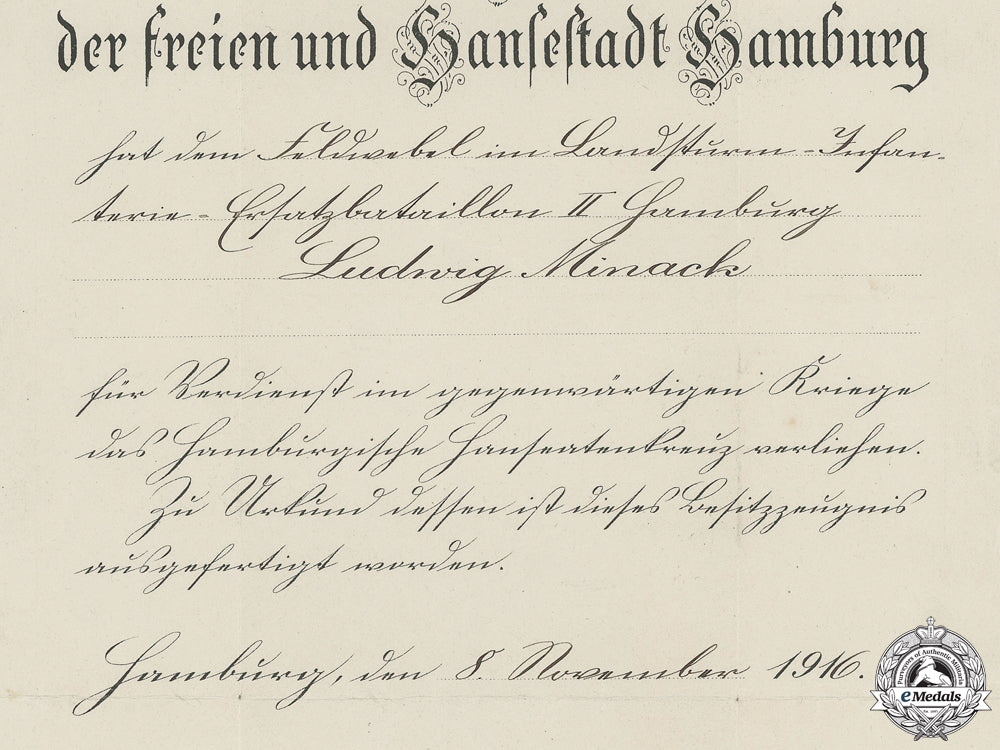 der freien und Hansestadt Hamburg
hat dem Feldwebel im Landsturm-Infan-
terie-Ersatzbataillon II Hamburg
Ludwig Minack
für Verdienst im gegenwärtigen Kriege
das Hamburgische Hanseatenkreuz verliehen.
Zu Urkund dessen ist dieses Besitzzeugnis
ausgefertigt worden.
Hamburg, den 8. November 1916.
Purveyors of Authentic Militaria
eMedals